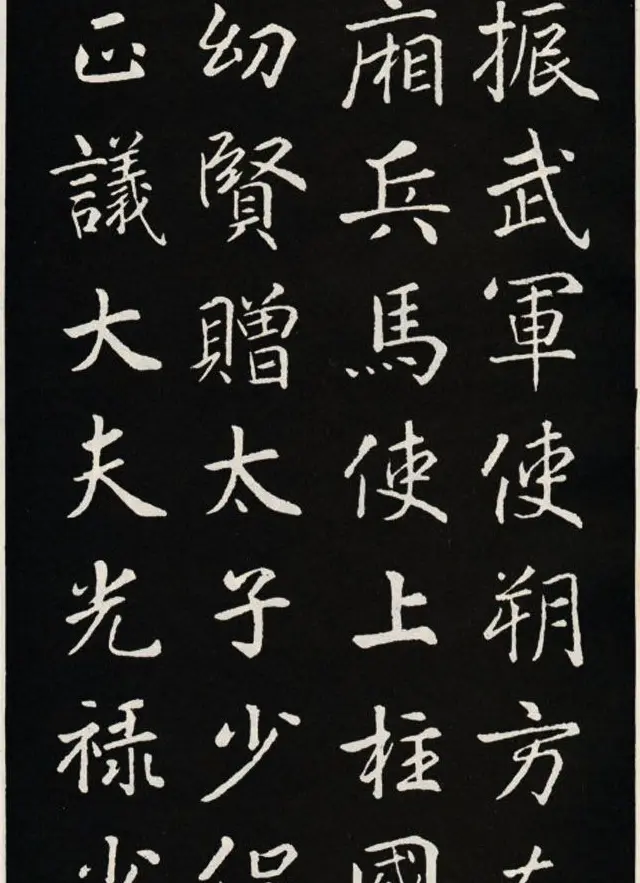 振武軍使朔方左
廂兵馬使上柱國
幼賢贈太子少保
正議大夫光祿少